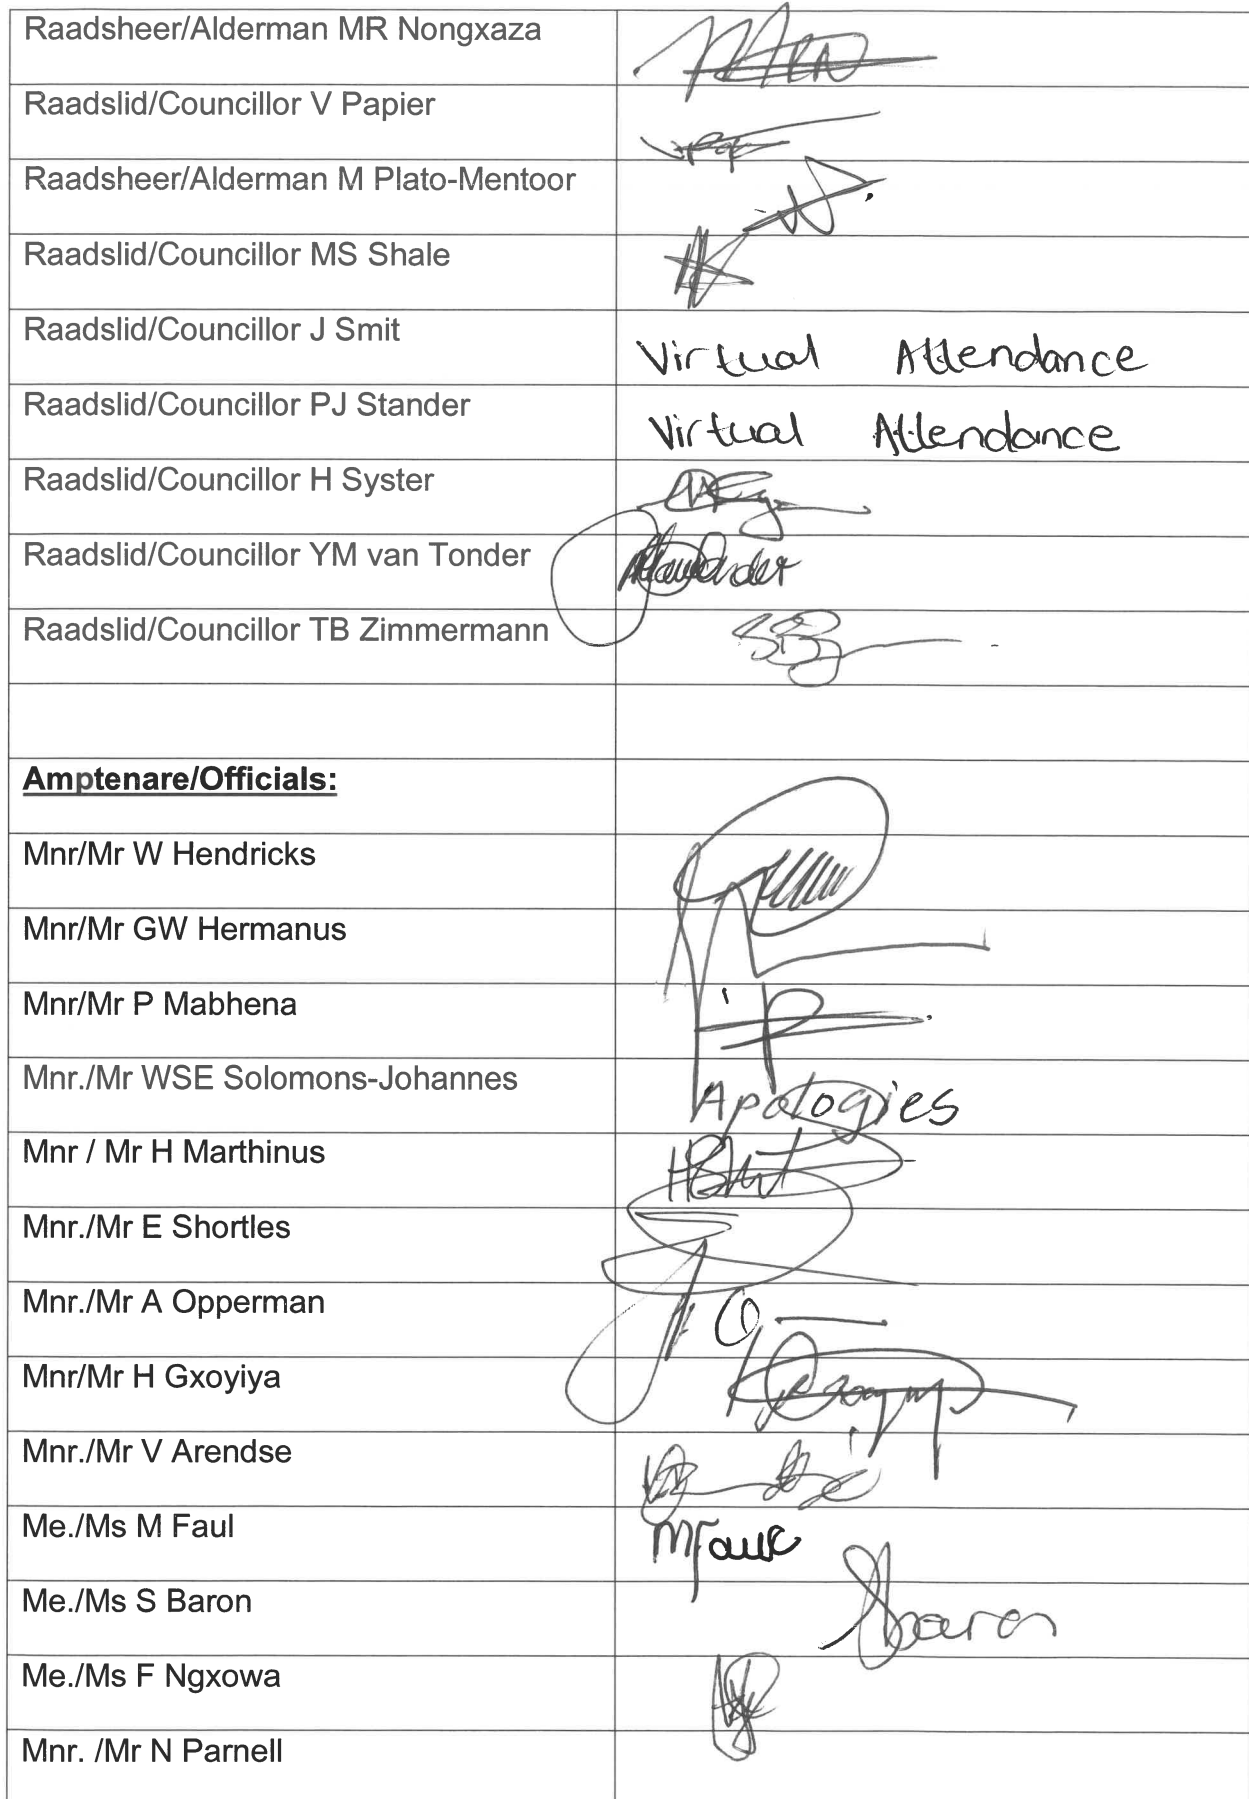 Raadsheer/Alderman MR Nongxaza
Raadslid/Councillor V Papier
Raadsheer/Alderman M Plato-Mentoor
Raadslid/Councillor MS Shale
Raadslid/Councillor J Smit Virtual Attendance
Raadslid/Councillor PJ Stander Virtual Attendance
Raadslid/Councillor H Syster
Raadslid/Councillor YM van Tonder
Raadslid/Councillor TB Zimmermann
Amptenare/Officials:
Mnr/Mr W Hendricks
Mnr/Mr GW Hermanus
Mnr/Mr P Mabhena
Mnr./Mr WSE Solomons-Johannes Apologies
Mnr / Mr H Marthinus
Mnr./Mr E Shortles
Mnr./Mr A Opperman
Mnr/Mr H Gxoyiya
Mnr./Mr V Arendse
Me./Ms M Faul MFaul
Me./Ms S Baron SBaron
Me./Ms F Ngxowa
Mnr. /Mr N Parnell